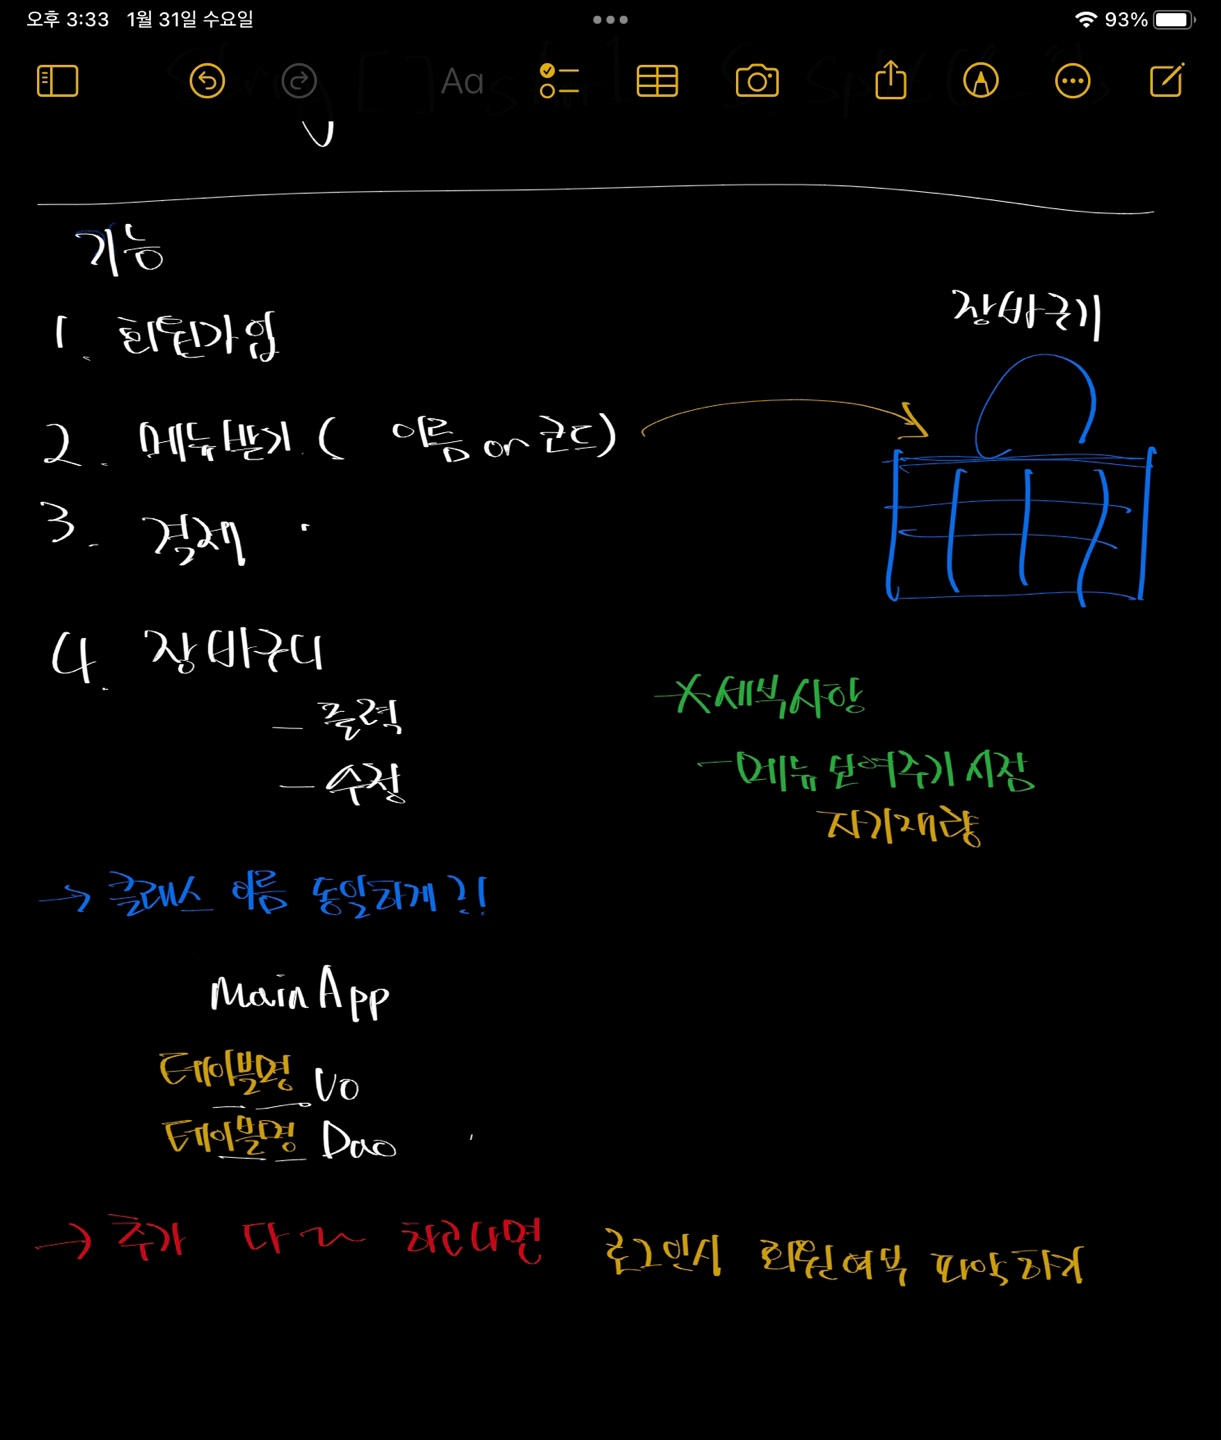 오후 3:33 1월 31일 수요일
93%
Aa
기능
1. 회원가입
장바구니
2. 메뉴받기 ( 이름 or 코드)
3. 결제
4. 장바구니
- 출력
- 수정
* 세부사항
- 메뉴 보여주기 시점
자기재량
→ 클래스 이름 동일하게?!
MainApp
테이블명 Vo
테이블명 Dao
→ 추가 다~ 하고나면 로그인시 회원여부 파악하기